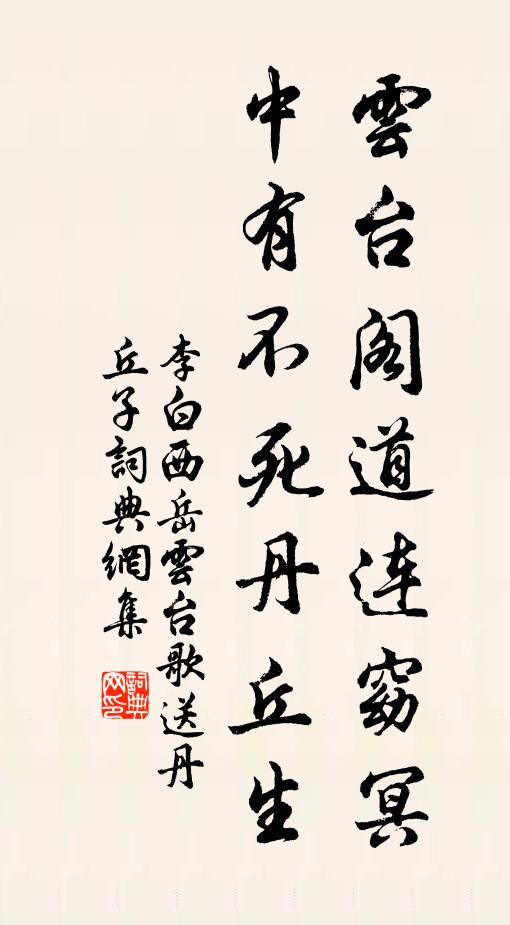 雲台阁道连窈冥
中有不死丹丘生
李白西岳雲台歌送丹
丘子詞典網集
詞典网印